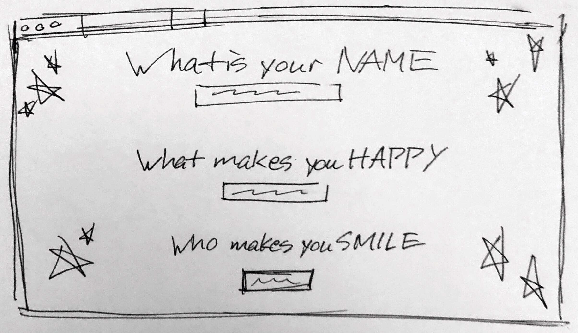 What is your NAME
What makes you HAPPY
Who makes you SMILE